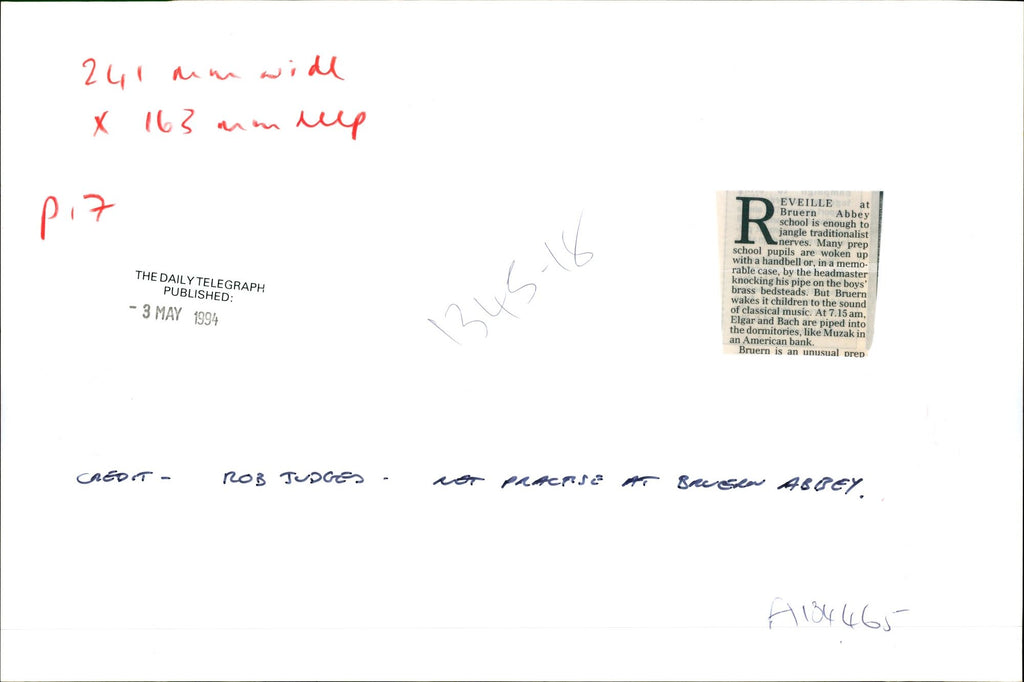 241 mm wide
x 163 mm deep
p.17
THE DAILY TELEGRAPH
PUBLISHED:
- 3 MAY 1994
1345-18
REVEILLE at
Bruern Abbey
school is enough to
jangle traditionalist
nerves. Many prep
school pupils are woken up
with a handbell or, in a memo-
rable case, by the headmaster
knocking his pipe on the boys'
brass bedsteads. But Bruern
wakes it children to the sound
of classical music. At 7.15 am,
Elgar and Bach are piped into
the dormitories, like Muzak in
an American bank.
Bruern is an unusual prep
CREDIT - ROB JUDGES - NET PRACTISE AT BRUERN ABBEY.
A134465